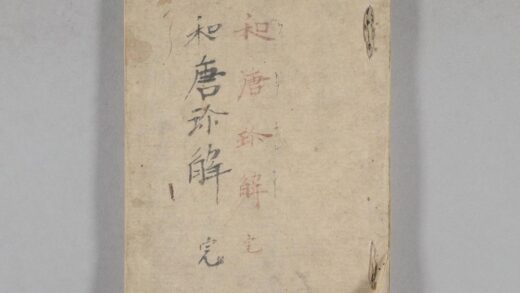 和唐珎解 完
和唐珎解 完